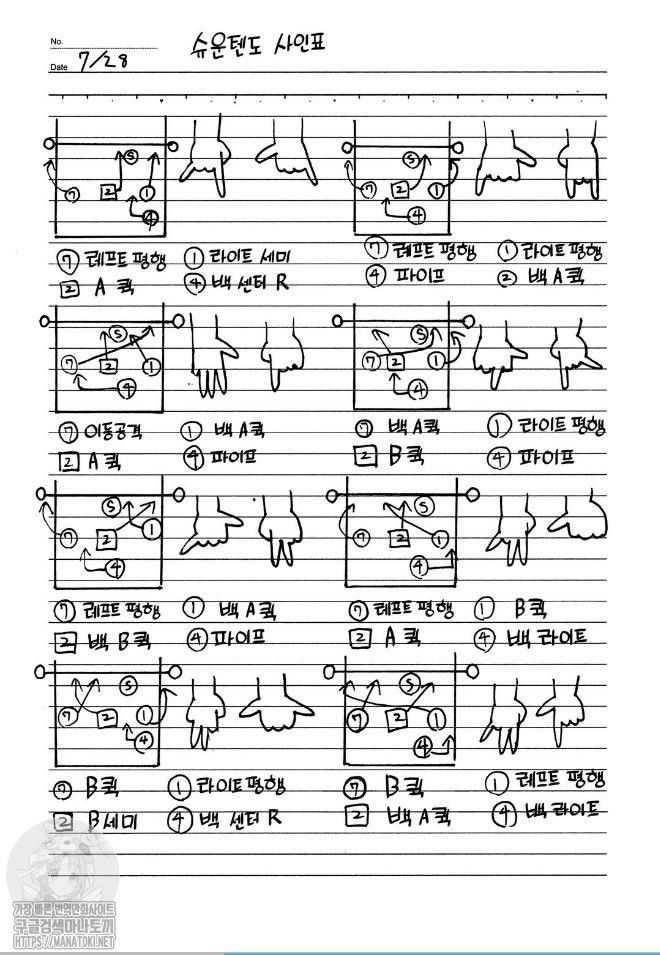 No.
Date 7/28
슈운텐도 사인표
S
7 2 1
4
⑦ 레프트 평행 ① 라이트 세미
2 A 퀵 ④ 백 센터 R
S
7 2 1
4
⑦ 레프트 평행 ① 라이트 평행
④ 파이프 ② 백 A퀵
S
7 2 1
4
⑦ 이동공격 ① 백 A퀵
2 A퀵 ④ 파이프
S
7 2 1
4
⑦ 백 A퀵 ① 라이트 평행
2 B 퀵 ④ 파이프
S
7 2 1
4
⑦ 레프트 평행 ① 백 A퀵
2 백 B퀵 ④ 파이프
S
7 2 1
4
⑦ 레프트 평행 ① B퀵
2 A 퀵 ④ 백 라이트
S
7 2 1
4
⑦ B퀵 ① 라이트 평행
2 B세미 ④ 백 센터 R
S
7 2 1
4
⑦ B퀵 ① 레프트 평행
2 백 A퀵 ④ 백 라이트
가장 빠른 번역만화사이트
구글검색마나토끼
HTTPS://MANATOKI.NET